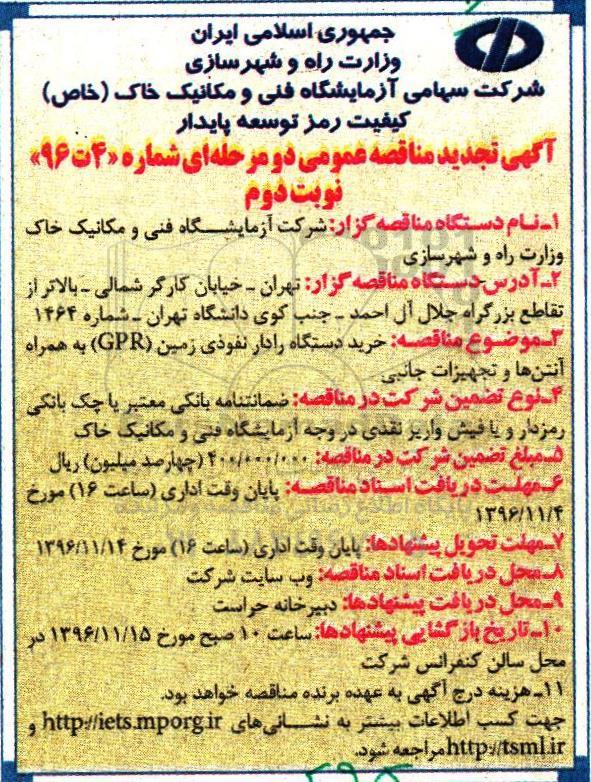 جمهوری اسلامی ایران
وزارت راه و شهرسازی
شرکت سهامی آزمایشگاه فنی و مکانیک خاک (خاص)
کیفیت رمز توسعه پایدار
آگهی تجدید مناقصه عمومی دو مرحله‌ای شماره «۴ت۹۶»
نوبت دوم
۱ـ نام دستگاه مناقصه گزار: شرکت آزمایشگاه فنی و مکانیک خاک
وزارت راه و شهرسازی
۲ـ آدرس دستگاه مناقصه گزار: تهران ـ خیابان کارگر شمالی ـ بالاتر از
تقاطع بزرگراه جلال آل احمد ـ جنب کوی دانشگاه تهران ـ شماره ۱۴۶۴
۳ـ موضوع مناقصه: خرید دستگاه رادار نفوذی زمین (GPR) به همراه
آنتن‌ها و تجهیزات جانبی
۴ـ نوع تضمین شرکت در مناقصه: ضمانتنامه بانکی معتبر یا چک بانکی
رمزدار و یا فیش واریز نقدی در وجه آزمایشگاه فنی و مکانیک خاک
۵ـ مبلغ تضمین شرکت در مناقصه: ۴۰۰/۰۰۰/۰۰۰ (چهارصد میلیون) ریال
۶ـ مهلت دریافت اسناد مناقصه: پایان وقت اداری (ساعت ۱۶) مورخ
۱۳۹۶/۱۱/۴
۷ـ مهلت تحویل پیشنهادها: پایان وقت اداری (ساعت ۱۶) مورخ ۱۳۹۶/۱۱/۱۴
۸ـ محل دریافت اسناد مناقصه: وب سایت شرکت
۹ـ محل دریافت پیشنهادها: دبیرخانه حراست
۱۰ـ تاریخ بازگشایی پیشنهادها: ساعت ۱۰ صبح مورخ ۱۳۹۶/۱۱/۱۵ در
محل سالن کنفرانس شرکت
۱۱ـ هزینه درج آگهی به عهده برنده مناقصه خواهد بود.
جهت کسب اطلاعات بیشتر به نشانی‌های http://iets.mporg.ir و
http://tsml.ir مراجعه شود.